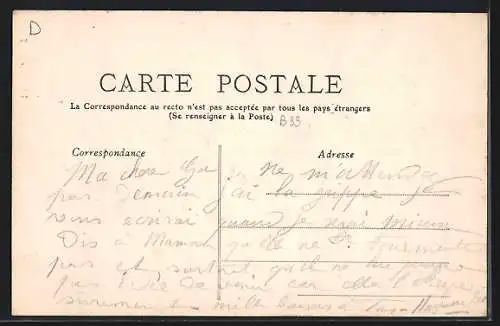 D
CARTE POSTALE
La Correspondance au recto n'est pas acceptée par tous les pays étrangers
(Se renseigner à la Poste)
B33
Correspondance
Adresse
Ma chere ne m'attends
pas demain j'ai la grippe je
vous ecrirai quand je serai mieux
Dis à Maman qu'elle ne se tourmente
pas et surtout qu'elle ne
pas de venir car elle
et mille baisers à